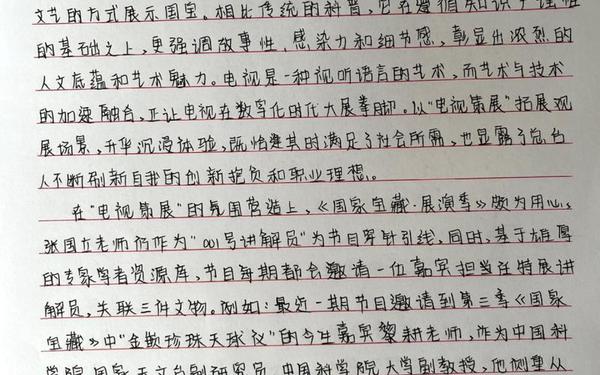 文艺的方式展示国宝。相比传统的科普,它在遵循知识
的基础之上,更强调故事性、感染力和细节感,彰显出浓烈的
人文底蕴和艺术魅力。电视是一种视听语言的艺术,而艺术与技术
的加速融合,正让电视在数字化时代大展拳脚。以“电视策展”拓展观
展场景,升华沉浸体验,既恰逢其时满足了社会所需,也显露了总台
人不断刷新自我的创新抱负和职业理想。
在“电视策展”的氛围营造上,《国家宝藏·展演季》颇为用心。
张国立老师仍作为“001号讲解员”为节目穿针引线,同时,基于雄厚
的专家学者资源库,节目每期都会邀请一位嘉宾担当任特展讲
解员,关联三件文物。例如:最近一期节目邀请到第三季《国家
宝藏》中“金嵌珍珠天球仪”的今生嘉宾黎耕老师,作为中国科
学院国家天文台副研究员、中国科学院大学副教授,他侧重从